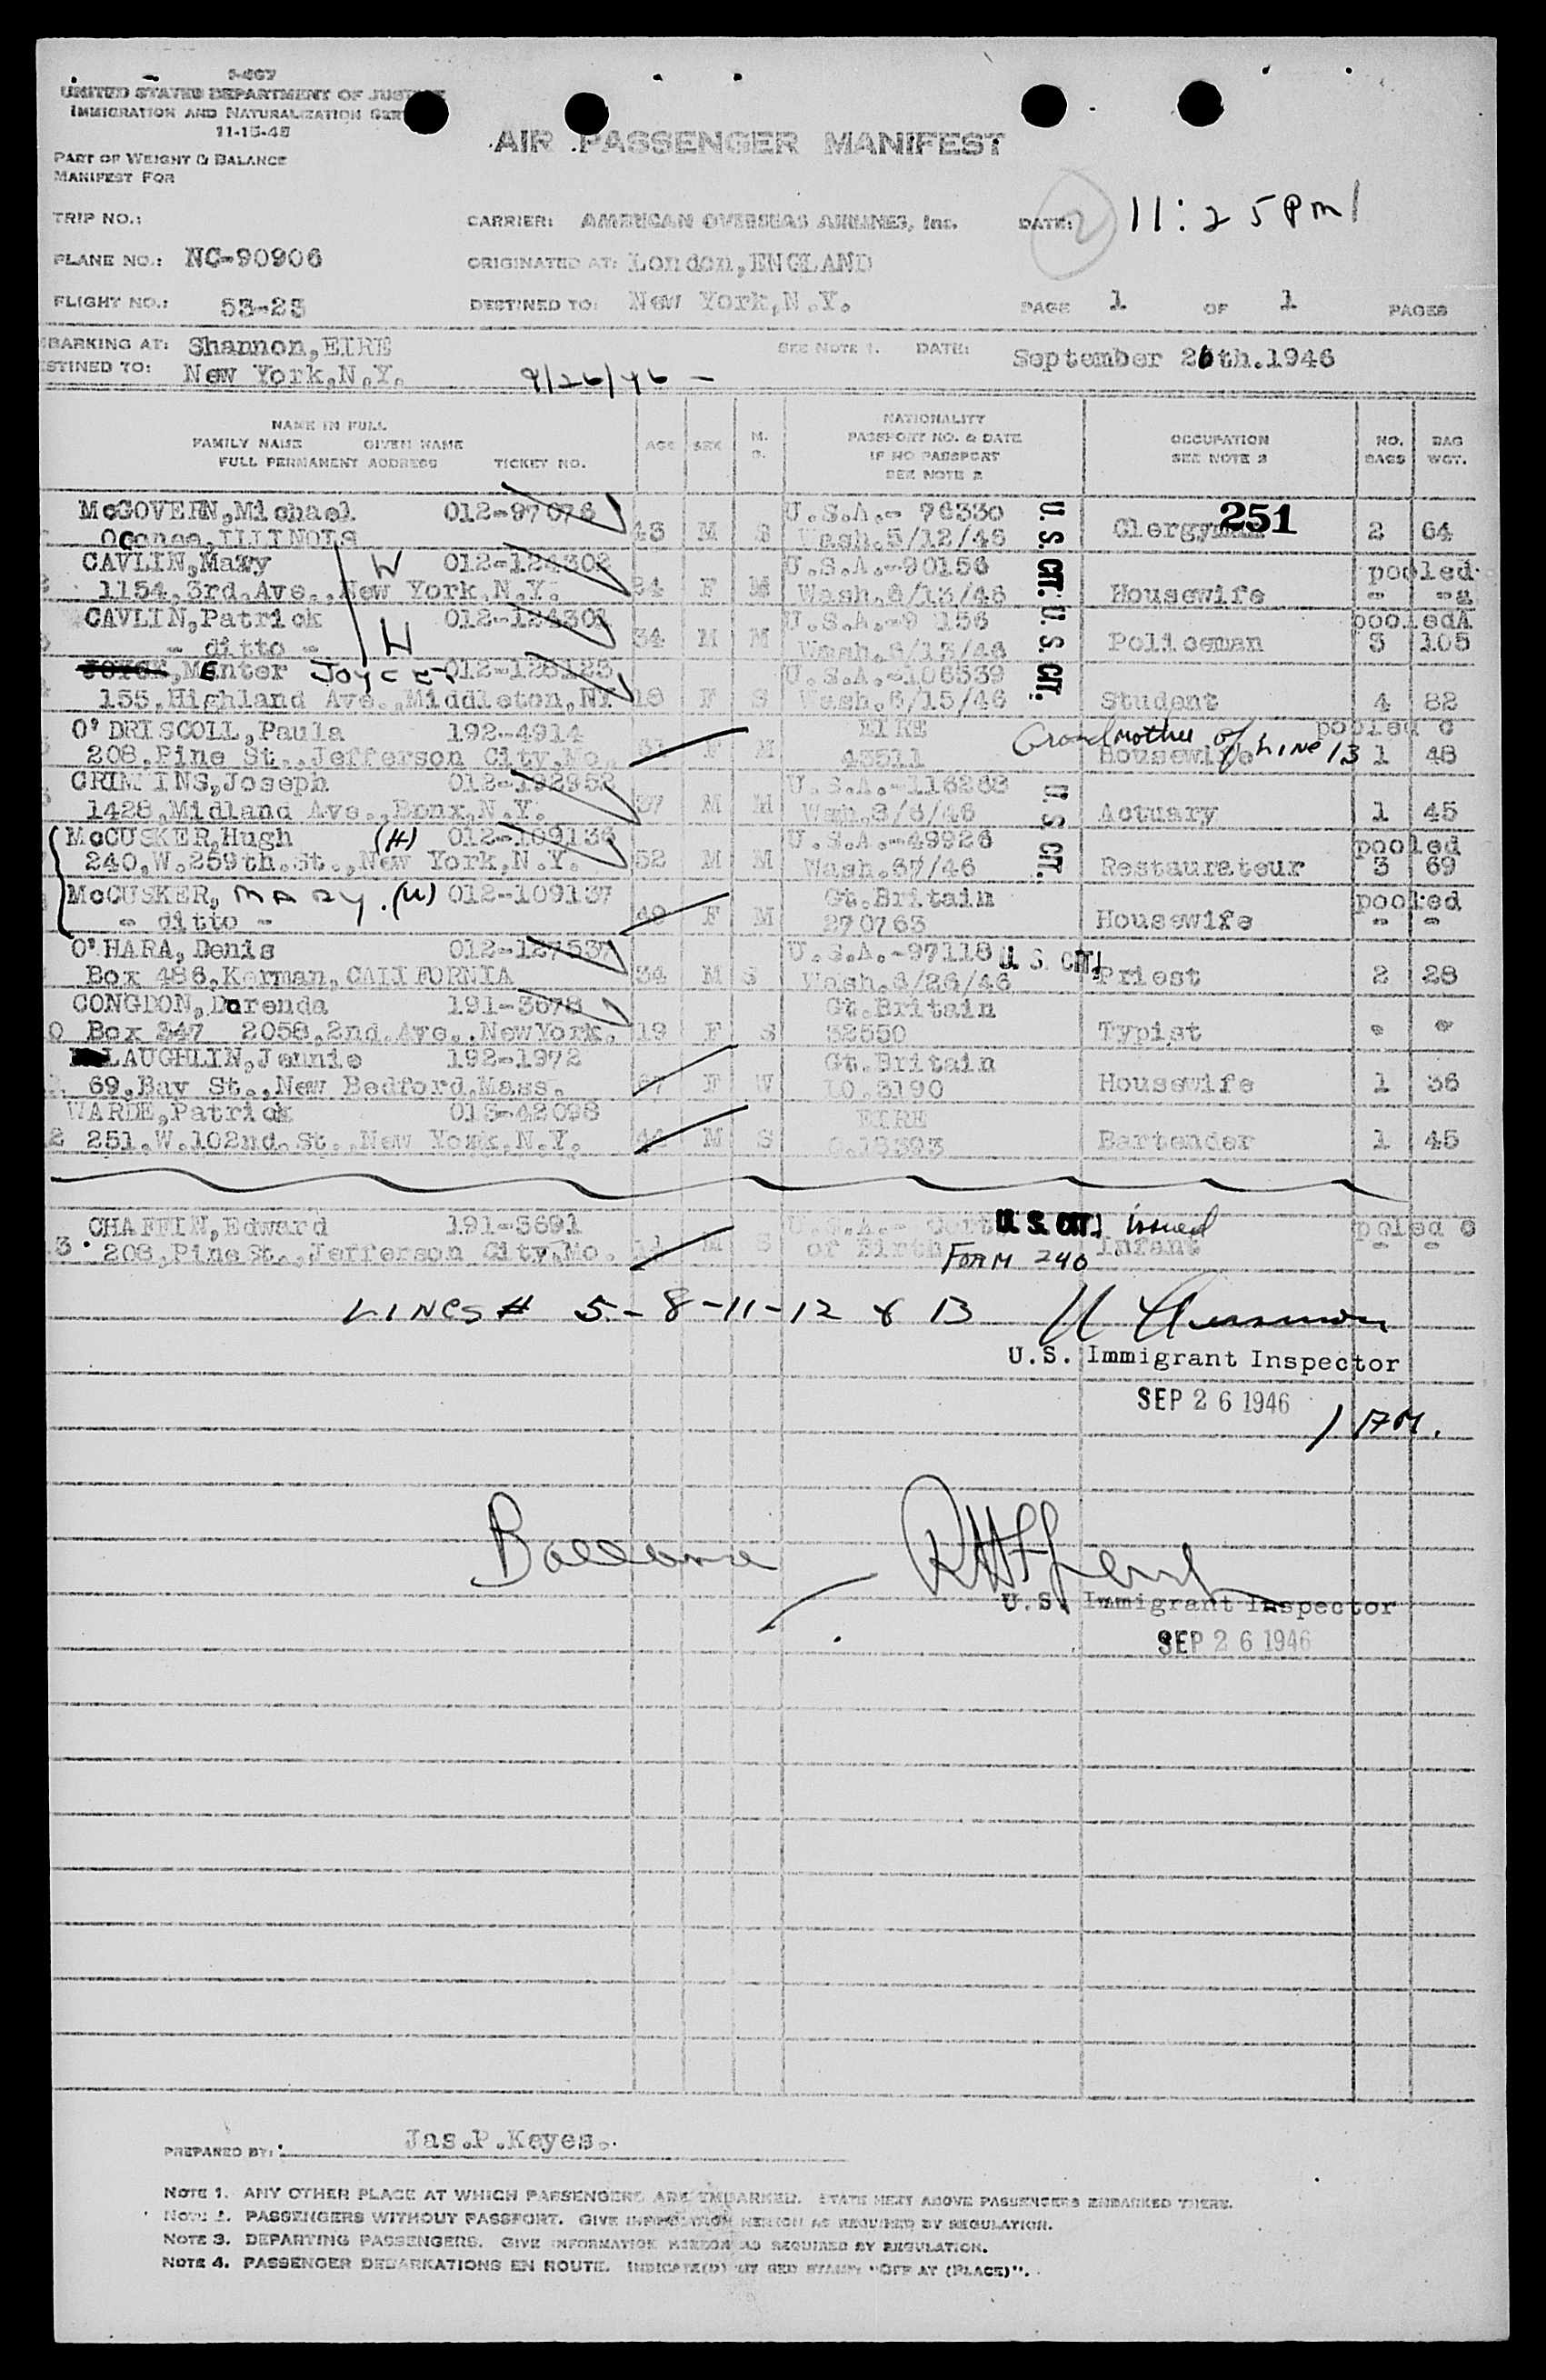 I-467
UNITED STATES DEPARTMENT OF JUSTICE
IMMIGRATION AND NATURALIZATION SERV
11-15-45
AIR PASSENGER MANIFEST
PART OF WEIGHT & BALANCE
MANIFEST FOR
TRIP NO.: CARRIER: AMERICAN OVERSEAS AIRLINES, Inc. DATE: 2 11:25 PM
PLANE NO.: NC-90906 ORIGINATED AT: London,ENGLAND
FLIGHT NO.: 53-25 DESTINED TO: New York,N.Y. PAGE 1 OF 1 PAGES
BARKING AT: Shannon,EIRE SEE NOTE 1. DATE: September 26th.1946
STINED TO: New York,N.Y. 9/26/46 -
NAME IN FULL
FAMILY NAME GIVEN NAME
FULL PERMANENT ADDRESS TICKET NO. AGE SEX M. S. NATIONALITY PASSPORT NO. & DATE IF NO PASSPORT SEE NOTE 2 OCCUPATION SEE NOTE 3 NO. BAGS BAG WGT.
McGOVERN,Michael 012-97076 U.S.A.- 76330 251
ILLINOIS 43 M S Wash.5/12/46 U.S. CIT. Clergyman 2 64
CAVLIN,Mary W 012-124302 U.S.A.-90156 pooled
1154,3rd.Ave.,New York,N.Y. 34 F M Wash.6/13/46 U.S. CIT. Housewife - -
CAVLIN,Patrick 012-124301 U.S.A.-9 156 pooledA
- ditto - H 34 M M Wash.6/13/46 U.S. CIT. Policeman 3 105
MEnter JOYCE 012-128123 U.S.A.-106539
155,Highland Ave.,Middleton,NY 18 F S Wash.6/15/46 Student 4 82
O'DRISCOLL,Paula 192-4914 EIRE Grandmother of LINE 13 pooled C
208,Pine St.,Jefferson City,Mo. F M 43511 Housewife 1 48
CRIMMINS,Joseph 012-192952 U.S.A.-116268
1428,Midland Ave.,Bronx,N.Y. 37 M M Wash.8/6/46 U.S. CIT. Actuary 1 45
McCUSKER,Hugh (H) 012-109136 U.S.A.-49926 pooled
240,W.259th.St.,New York,N.Y. 52 M M Wash.67/46 Restaurateur 3 69
McCUSKER, MARY. (W) 012-109137 Gt.Britain pooled
- ditto - 49 F M 270763 Housewife - -
O'HARA,Denis 012-127537 U.S.A.-97118 U.S. CIT.
Box 486,Kerman,CALIFORNIA 34 M S Wash.6/26/46 Priest 2 28
CONGDON,Dorenda 191-3678 Gt.Britain
0 Box 347 2058,2nd.Ave.,NewYork. 19 F S 32550 Typist - -
LAUGHLIN,Jennie 192-1972 Gt.Britain
69,Bay St.,New Bedford,Mass. 67 F W LO.3190 Housewife 1 36
WARDE,Patrick 013-42098 EIRE
2 251,W.102nd.St.,New York,N.Y. 44 M S C.15393 Bartender 1 45
CHAFFIN,Edward 191-3691 U.S.A.- Cert U.S. CIT. issued poled C
3 208,PineSt.,Jefferson City,Mo. M S of Birth FORM 240 Infant - -
LINES # 5-8-11-12 & 13
U.S. Immigrant Inspector
SEP 26 1946
1 AM.
U.S. Immigrant Inspector
SEP 26 1946
PREPARED BY: Jas.P.Keyes.
NOTE 1. ANY OTHER PLACE AT WHICH PASSENGERS ARE EMBARKED. STATE NEXT ABOVE PASSENGERS EMBARKED THERE.
NOTE 2. PASSENGERS WITHOUT PASSPORT. GIVE INFORMATION HEREON AS REQUIRED BY REGULATION.
NOTE 3. DEPARTING PASSENGERS. GIVE INFORMATION HEREON AS REQUIRED BY REGULATION.
NOTE 4. PASSENGER DEBARKATIONS EN ROUTE. INDICATE(D) BY RED STAMP "OFF AT (PLACE)".